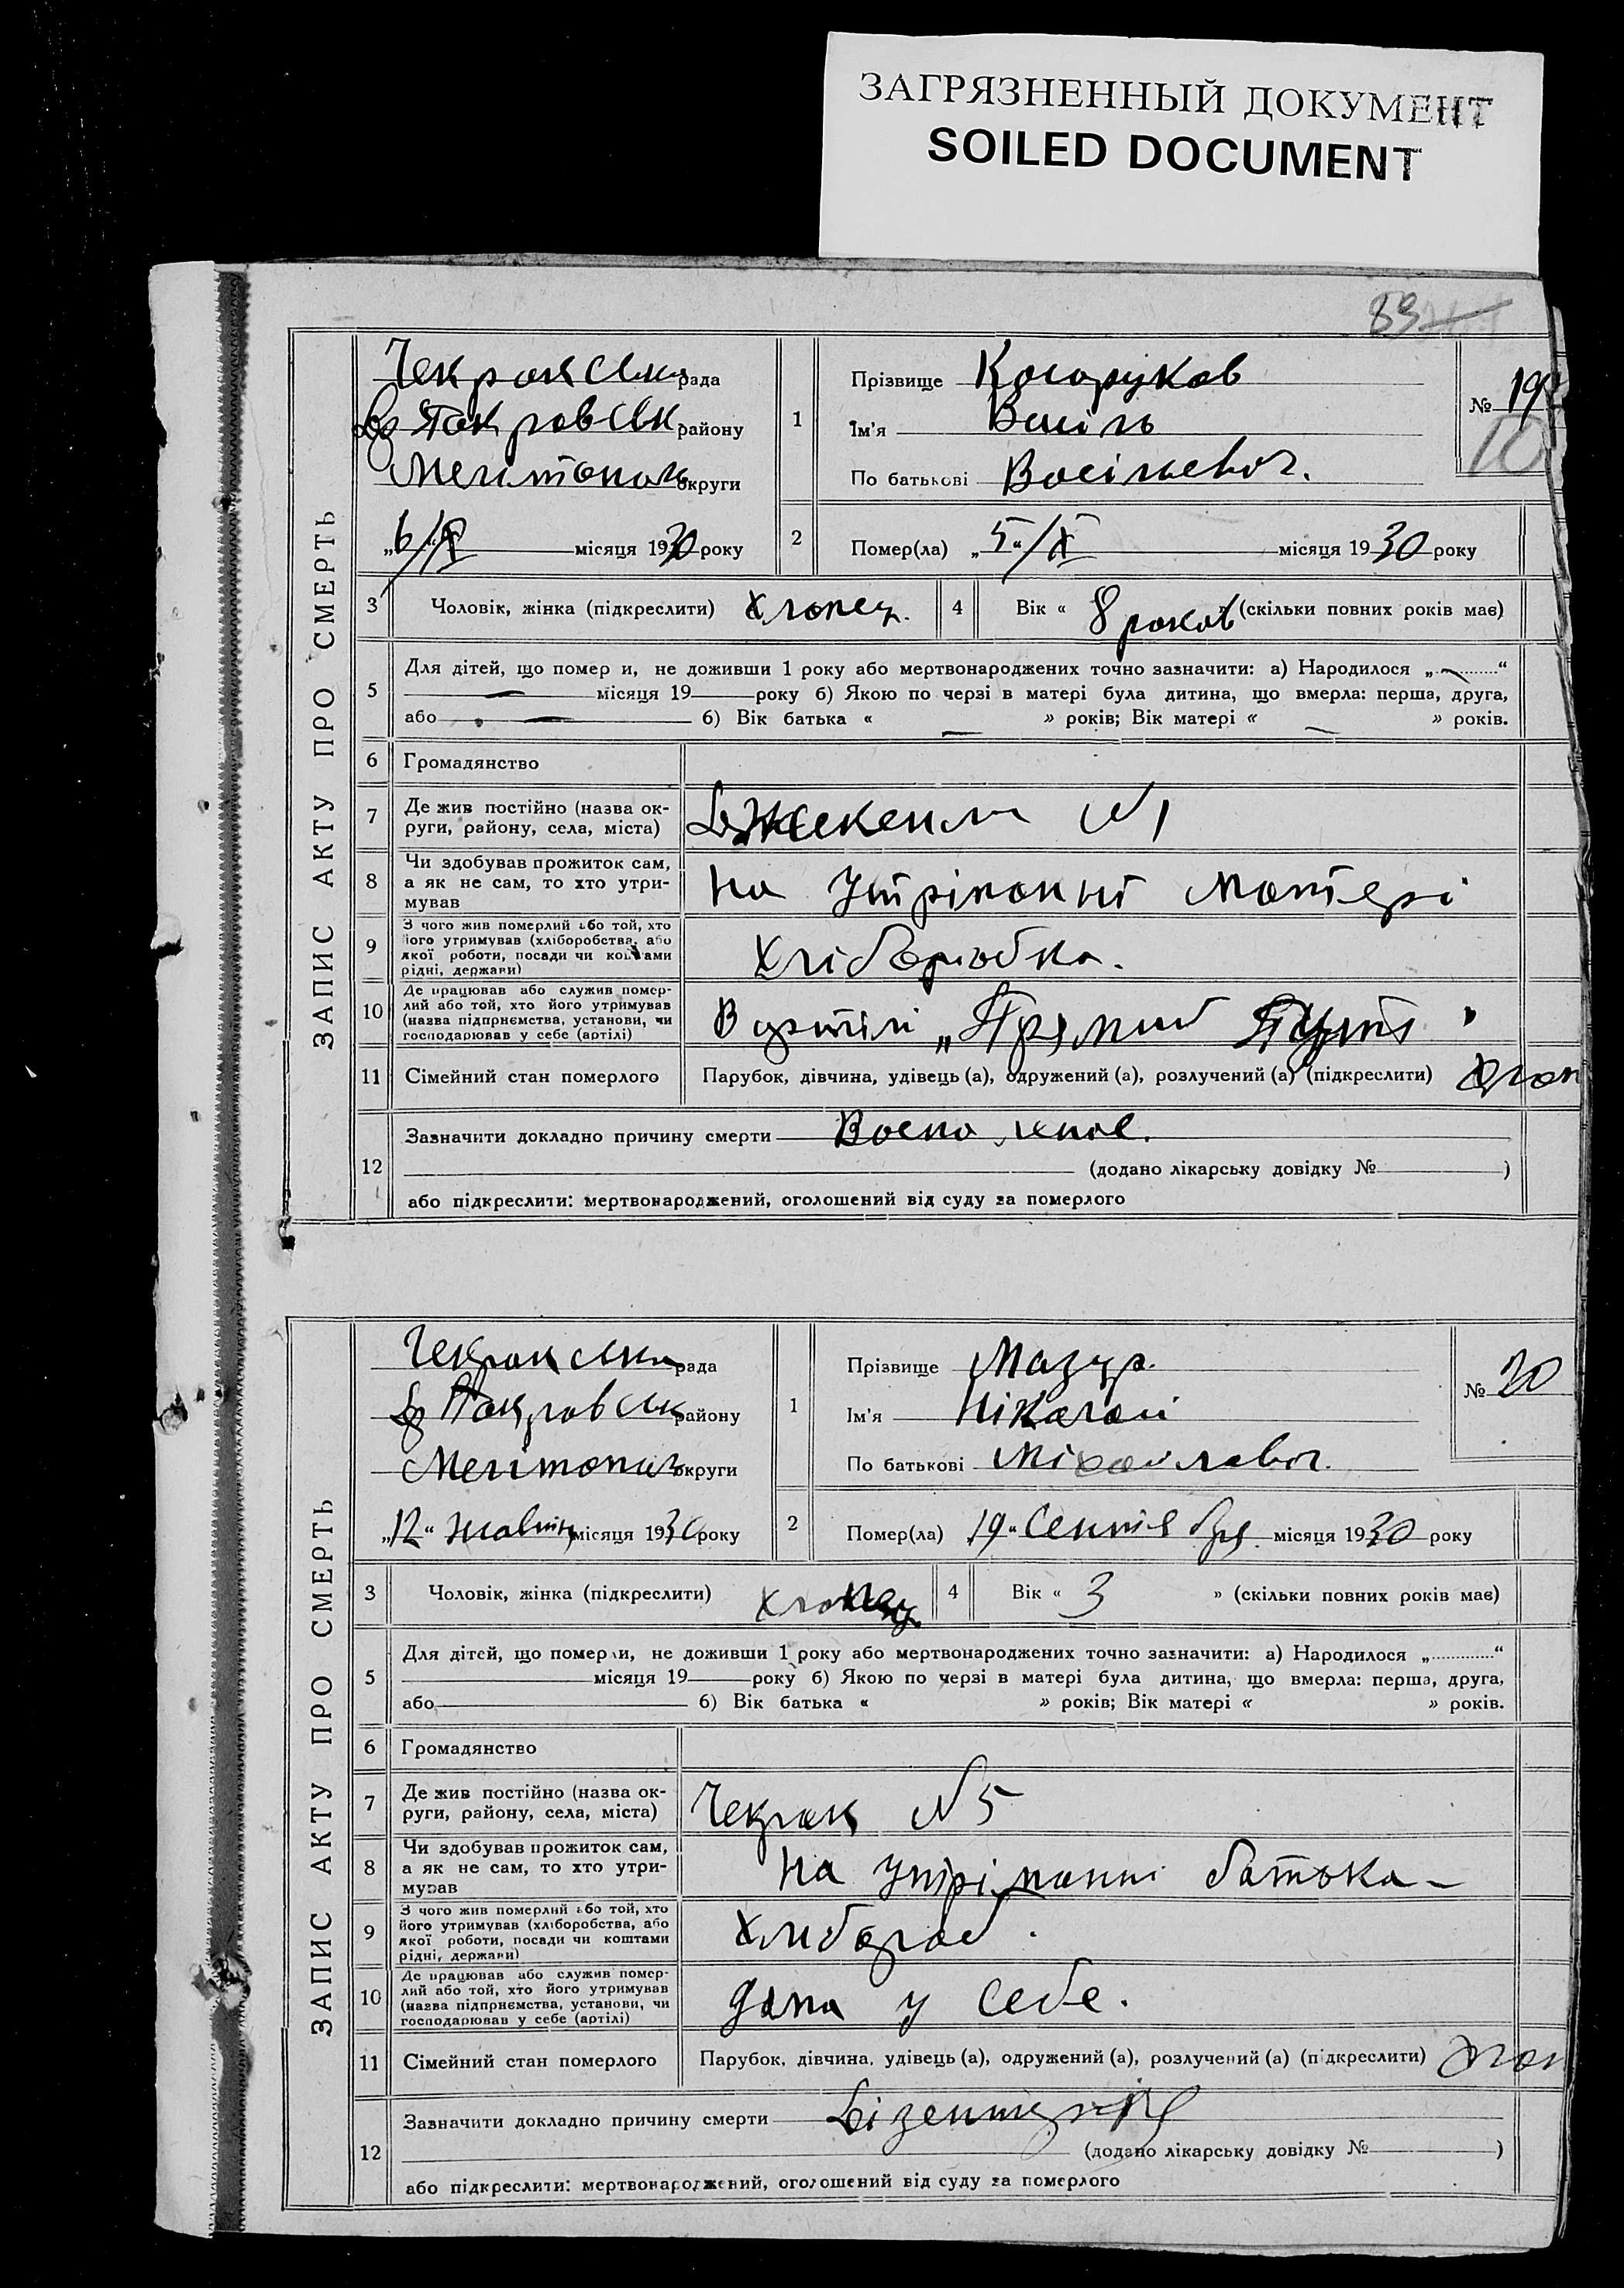 ЗАГРЯЗНЕННЫЙ ДОКУМЕНТ
SOILED DOCUMENT
83
ЗАПИС АКТУ ПРО СМЕРТЬ
рада
району
Мелитопол округи
„6/X місяця 1930 року
1
Прізвище Косоруков
Ім'я Васіль
По батькові Васільевіч.
№ 19
10
2
Помер(ла) „5“/X місяця 1930 року
3 Чоловік, жінка (підкреслити) Хлопец.
4 Вік « 8 роков » (скільки повних років має)
5
Для дітей, що помер и, не доживши 1 року або мертвонароджених точно зазначити: а) Народилося „ “
місяця 19 року б) Якою по черзі в матері була дитина, що вмерла: перша, друга,
або б) Вік батька « » років; Вік матері « » років.
6 Громадянство
7 Де жив постійно (назва ок-
руги, району, села, міста)
N 1
8 Чи здобував прожиток сам,
а як не сам, то хто утри-
мував
на утріманні матері
9 З чого жив померлий або той, хто
його утримував (хліборобства, або
якої роботи, посади чи коштами
рідні, держави)
Хліборобка.
10 Де працював або служив помер-
лий або той, хто його утримував
(назва підприємства, установи, чи
господарював у себе (артілі)
В артілі „Прямий Путь"
11 Сімейний стан померлого
Парубок, дівчина, удівець (а), одружений (а), розлучений (а) (підкреслити) хлоп
12
Зазначити докладно причину смерти
(додано лікарську довідку № )
або підкреслити: мертвонароджений, оголошений від суду за померлого
ЗАПИС АКТУ ПРО СМЕРТЬ
рада
району
Мелітопол округи
„12“ жовтня місяця 1930 року
1
Прізвище Мазур.
Ім'я Ніколай
По батькові Міхайлавіч.
№ 20
2
Помер(ла) 19“ Сентября місяця 1930 року
3 Чоловік, жінка (підкреслити) Хлопец
4 Вік « 3 » (скільки повних років має)
5
Для дітей, що померли, не доживши 1 року або мертвонароджених точно зазначити: а) Народилося „ “
місяця 19 року б) Якою по черзі в матері була дитина, що вмерла: перша, друга,
або б) Вік батька « » років; Вік матері « » років.
6 Громадянство
7 Де жив постійно (назва ок-
руги, району, села, міста)
Чекрак N 5
8 Чи здобував прожиток сам,
а як не сам, то хто утри-
мував
на утріманні батька
9 З чого жив померлий або той, хто
його утримував (хліборобства, або
якої роботи, посади чи коштами
рідні, держави)
Хлібороб.
10 Де працював або служив помер-
лий або той, хто його утримував
(назва підприємства, установи, чи
господарював у себе (артілі)
дома у себе.
11 Сімейний стан померлого
Парубок, дівчина, удівець (а), одружений (а), розлучений (а) (підкреслити) хлоп
12
Зазначити докладно причину смерти
(додано лікарську довідку № )
або підкреслити: мертвонароджений, оголошений від суду за померлого